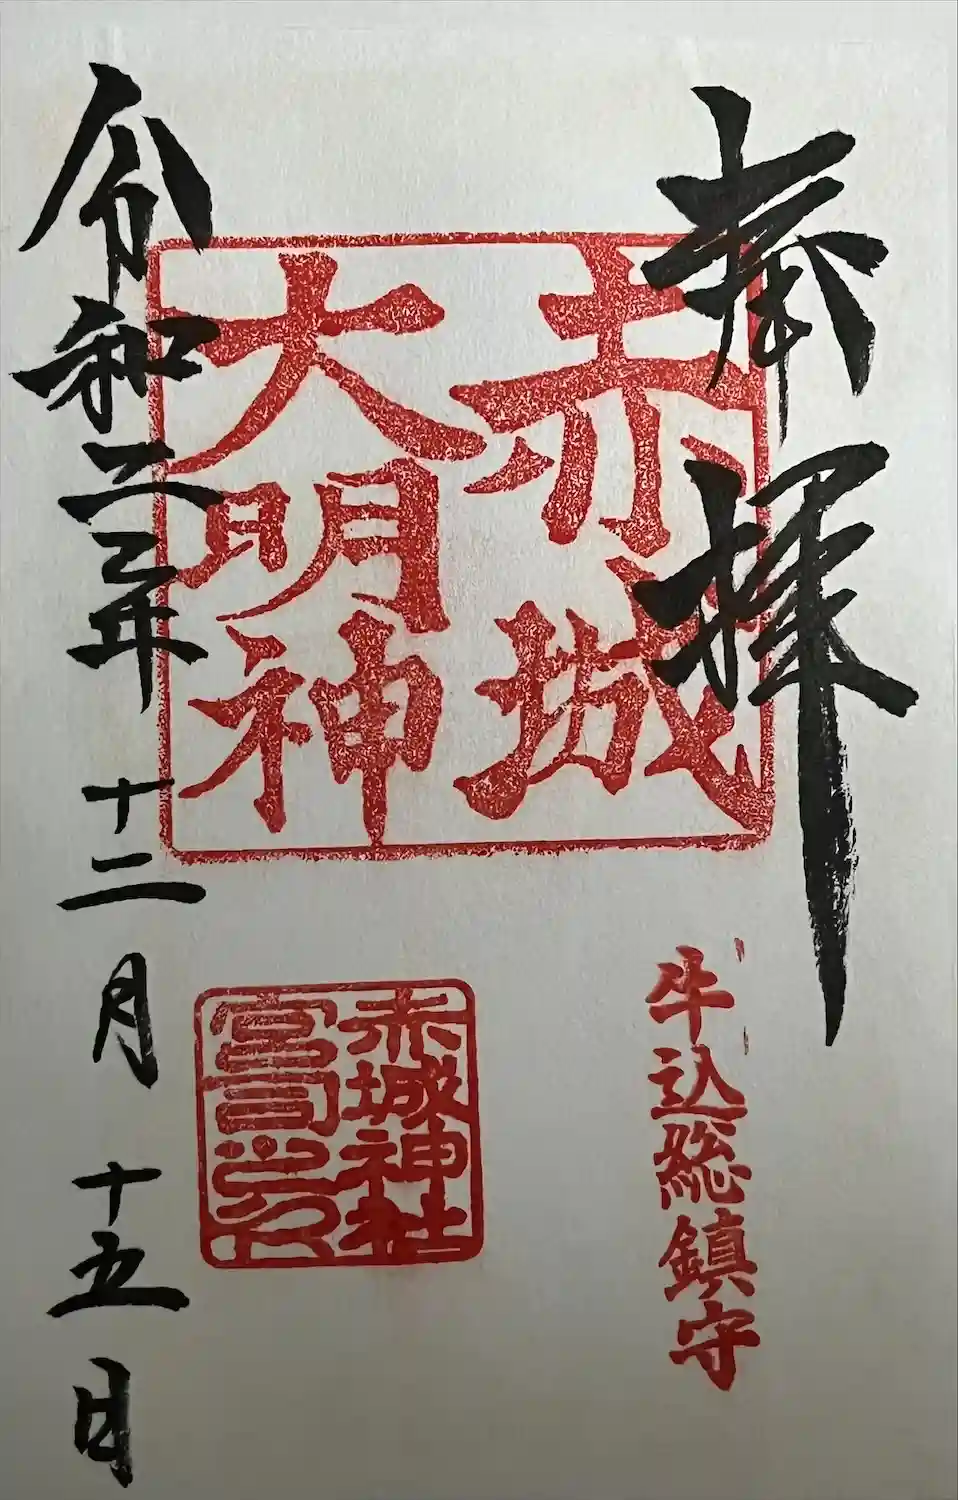 奉拝
牛込総鎮守
赤城
大明神
赤城神社
宮司之印
令和二年十二月十五日